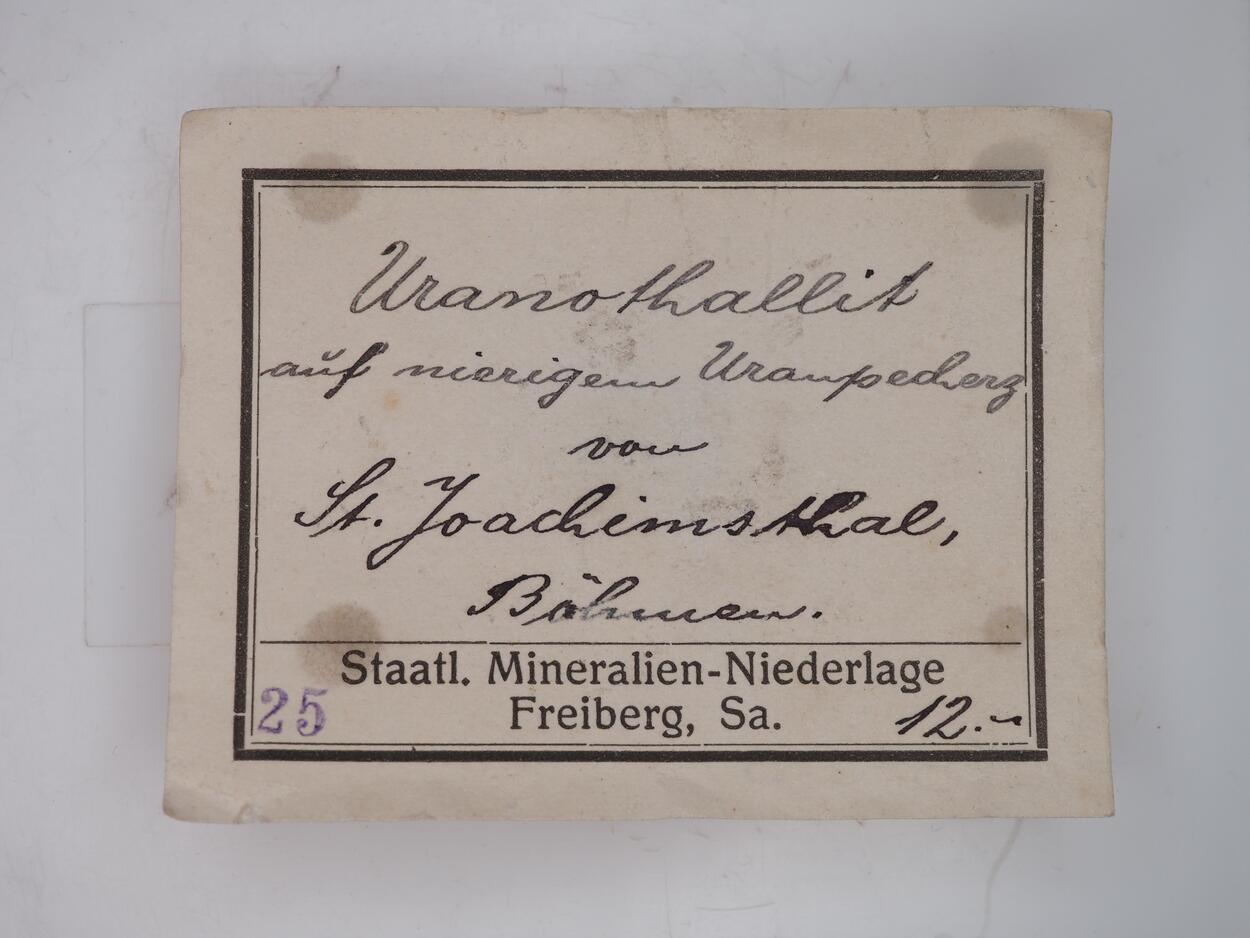 Uranothallit
auf nierigem Uranpecherz
von
St. Joachimsthal,
Böhmen.
Staatl. Mineralien-Niederlage
Freiberg, Sa.
25
12.-